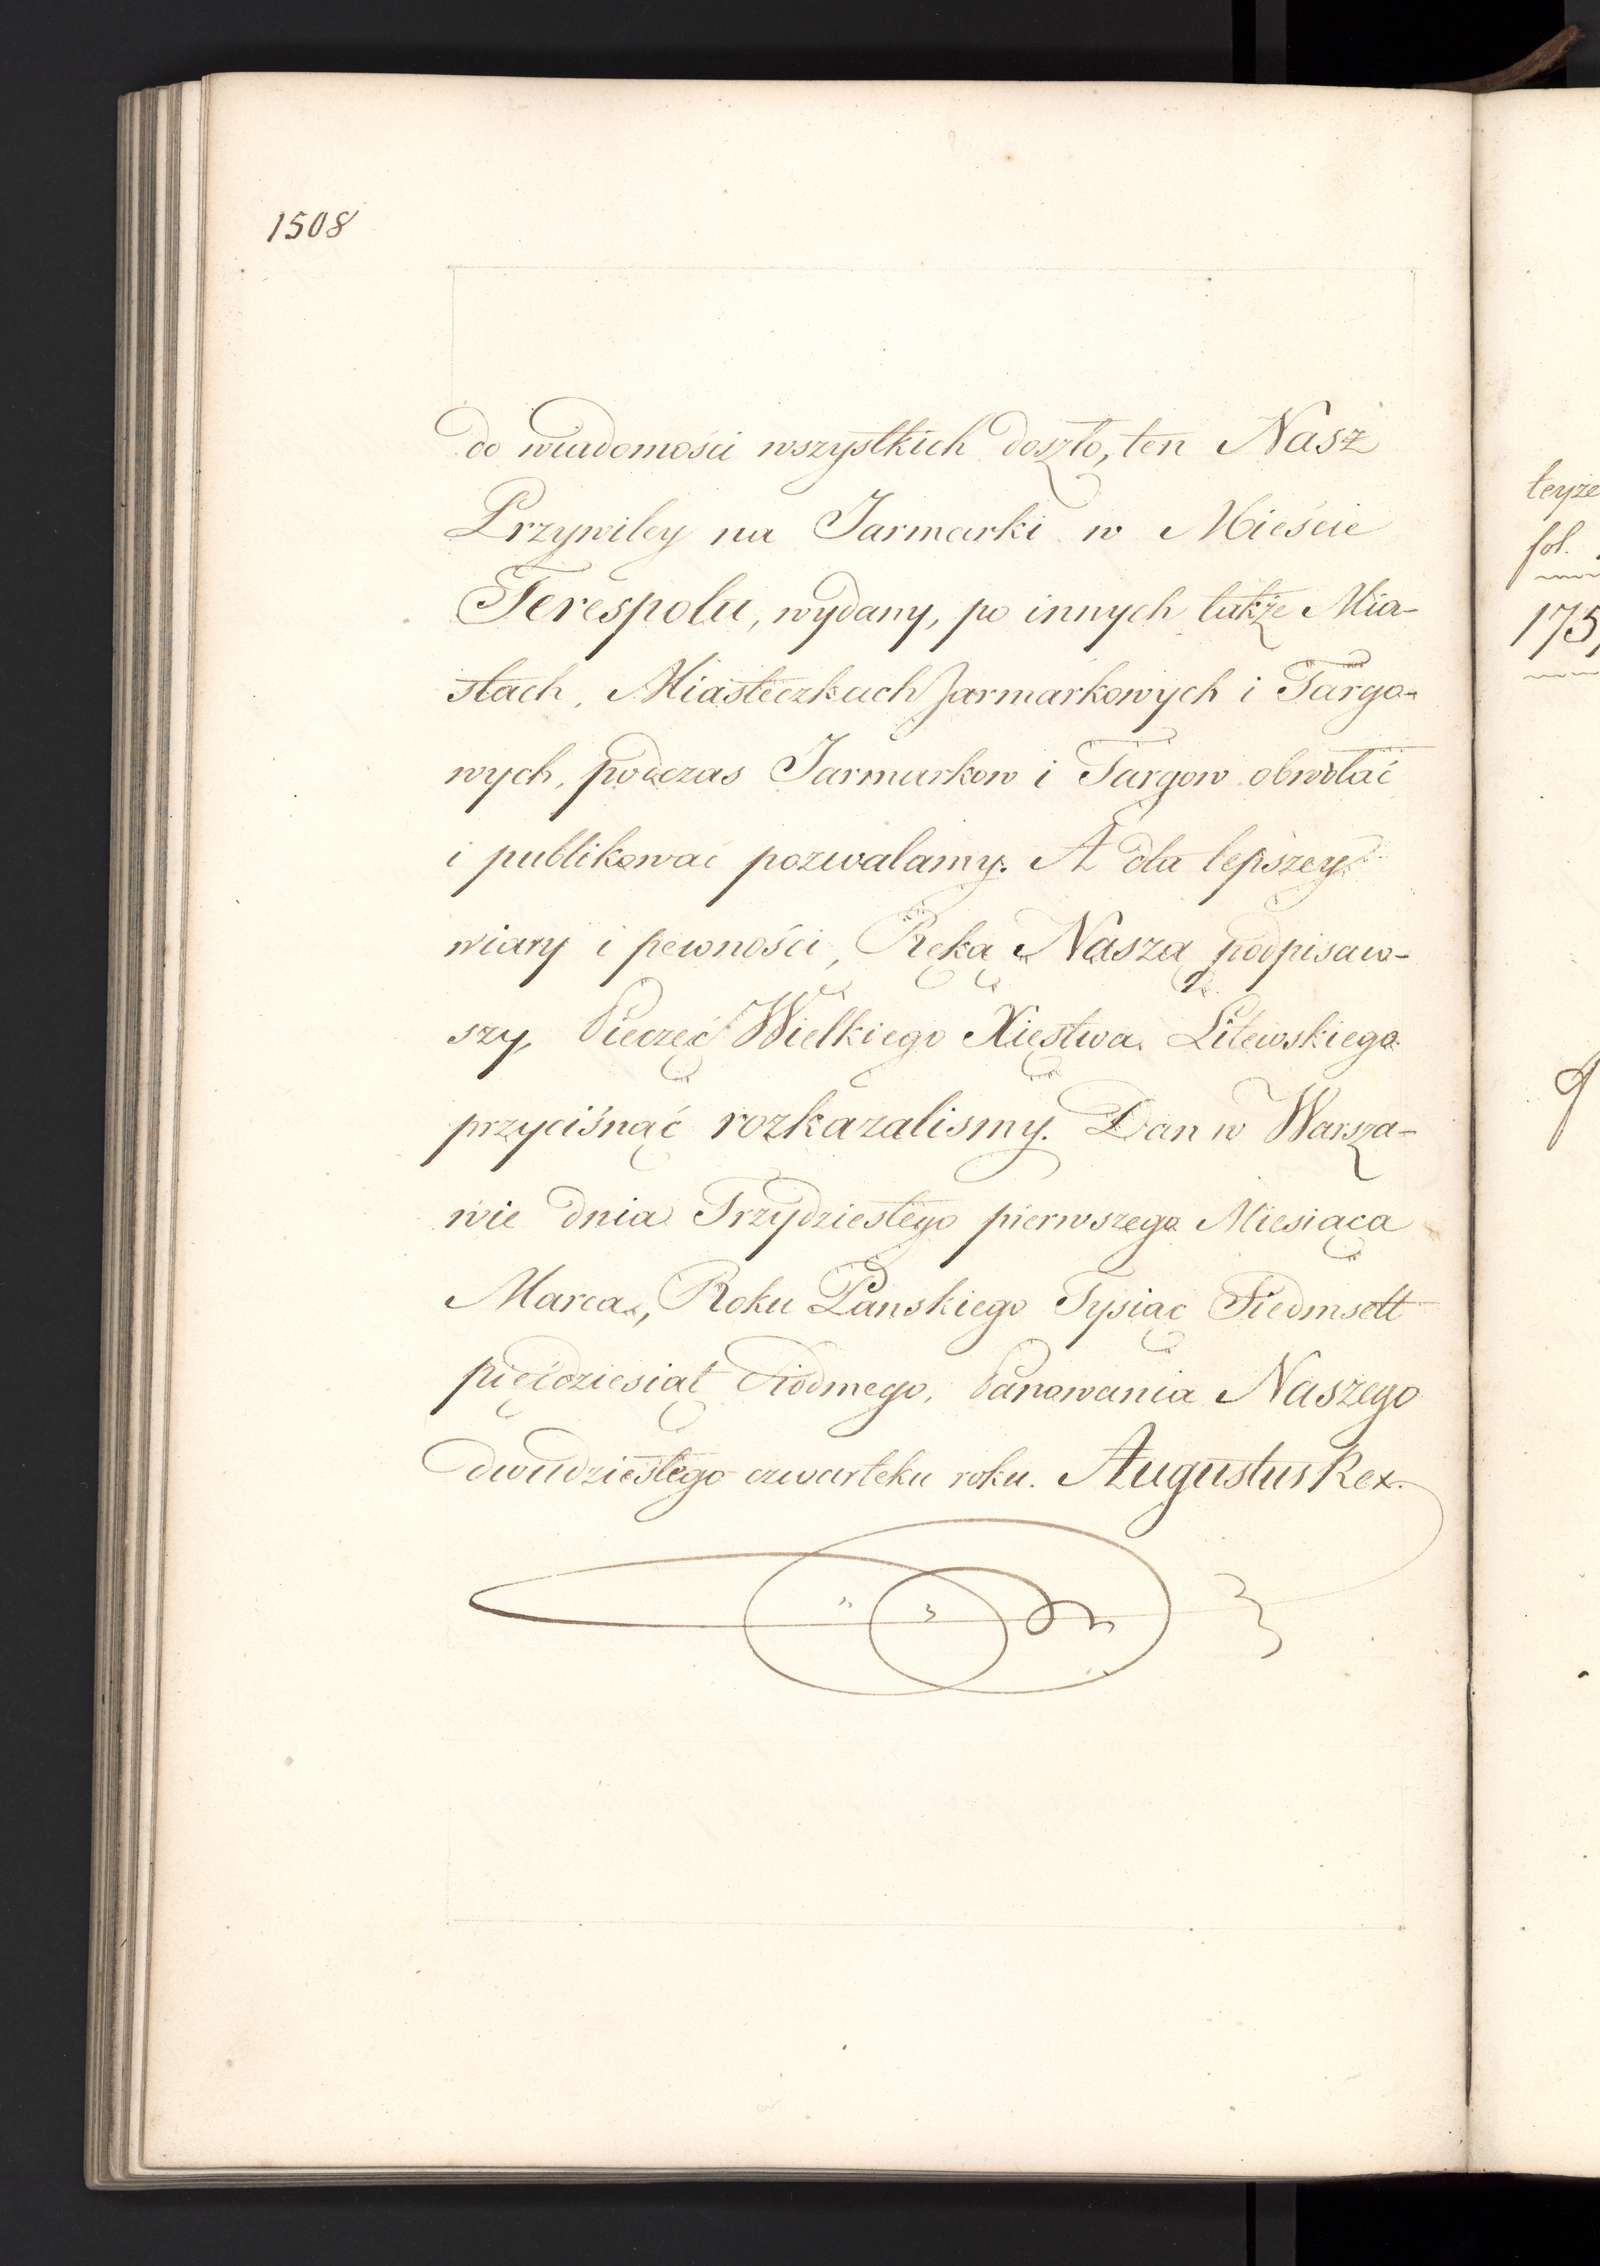 1508
do wiadomości wszystkich doszło, ten Nasz
Przywiley na Jarmarki w Mieście
Terespolu, wydany, po innych także Mia-
stach, Miasteczkach Jarmarkowych i Targo-
wych, podczas Jarmarkow i Targow obwołać
i publikować pozwalamy. A dla lepszey
wiary i pewności, Ręką Naszą podpisaw-
szy, Pieczęć Wielkiego Xięstwa Litewskiego
przycisnąć rozkazalismy. Dan w Warsza-
wie dnia Trzydziestego pierwszego Miesiąca
Marca, Roku Panskiego Tysiąc Siedmsett
pięcdziesiąt Siodmego, Panowania Naszego
dwudziestego czwarteku roku. Augustus Rex.
teyże
fol.
175